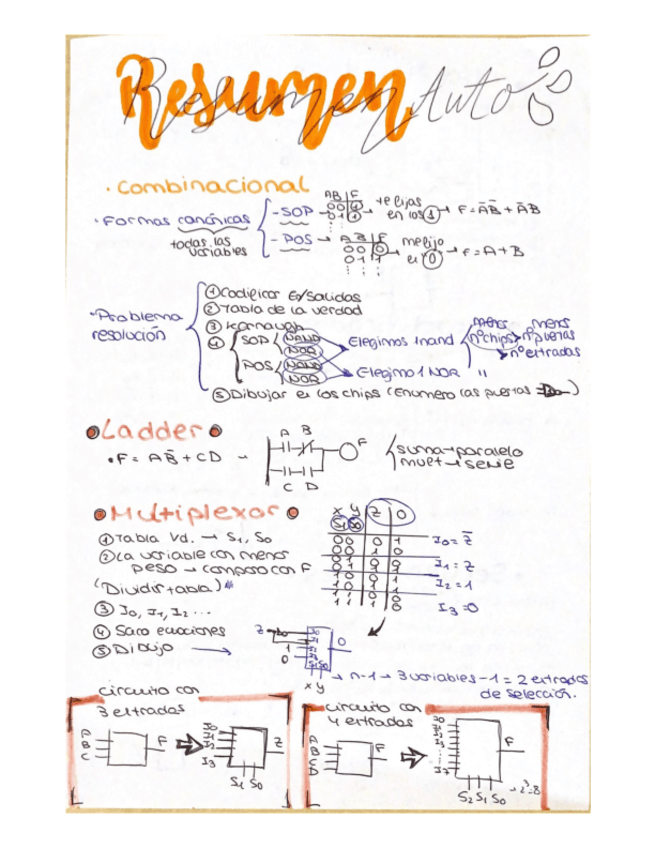 Resumen Auto
· Combinacional
· Formas canónicas
todas las variables
- SOP →
A B | F
0 0 | 1
0 1 | 1
te fijas en los 1 → F = A̅B̅ + A̅B
- POS →
A B F
0 0 0
0 1 1
me fijo en "0" → F = A + B
· Problema resolución
① Codificar E/Salidas
② Tabla de la verdad
③ Karnaugh
④ SOP NAND NOR
POS NAND NOR
Elegimos 1 nand
menos nºchips
menos nºpuertas
nº entradas
Elegimo 1 NOR "
⑤ Dibujar en los chips (Enumero las puertas)
Ladder
· F = AB̅ + CD →
A B F
C D
suma → paralelo
mult → serie
Multiplexor
① Tabla Vd. → S1, S0
② La variable con menos peso → comparo con F
(Dividir tabla)
③ I0, I1, I2 ...
④ Saco ecuaciones
⑤ Dibujo →
X Y Z O
S1 S0
I0 = Z̅
I1 = Z
I2 = 1
I3 = 0
Z
1
0
O
S1 S0
x y
→ n-1 → 3 variables - 1 = 2 entradas de selección.
circuito con 3 entradas
A
B
C
F
I0
I1
I2
I3
Z
S1 S0
circuito con 4 entradas
A
B
C
D
F
I0
I1
I2
I3
I7
F
S2 S1 S0
→ 2³=8